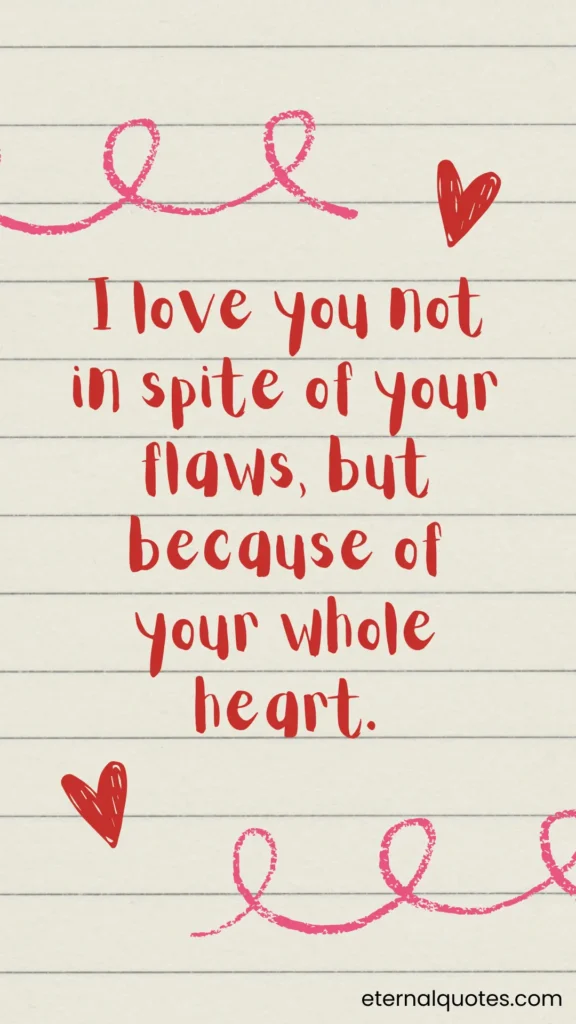 I love you not
in spite of your
flaws, but
because of
your whole
heart.
eternalquotes.com